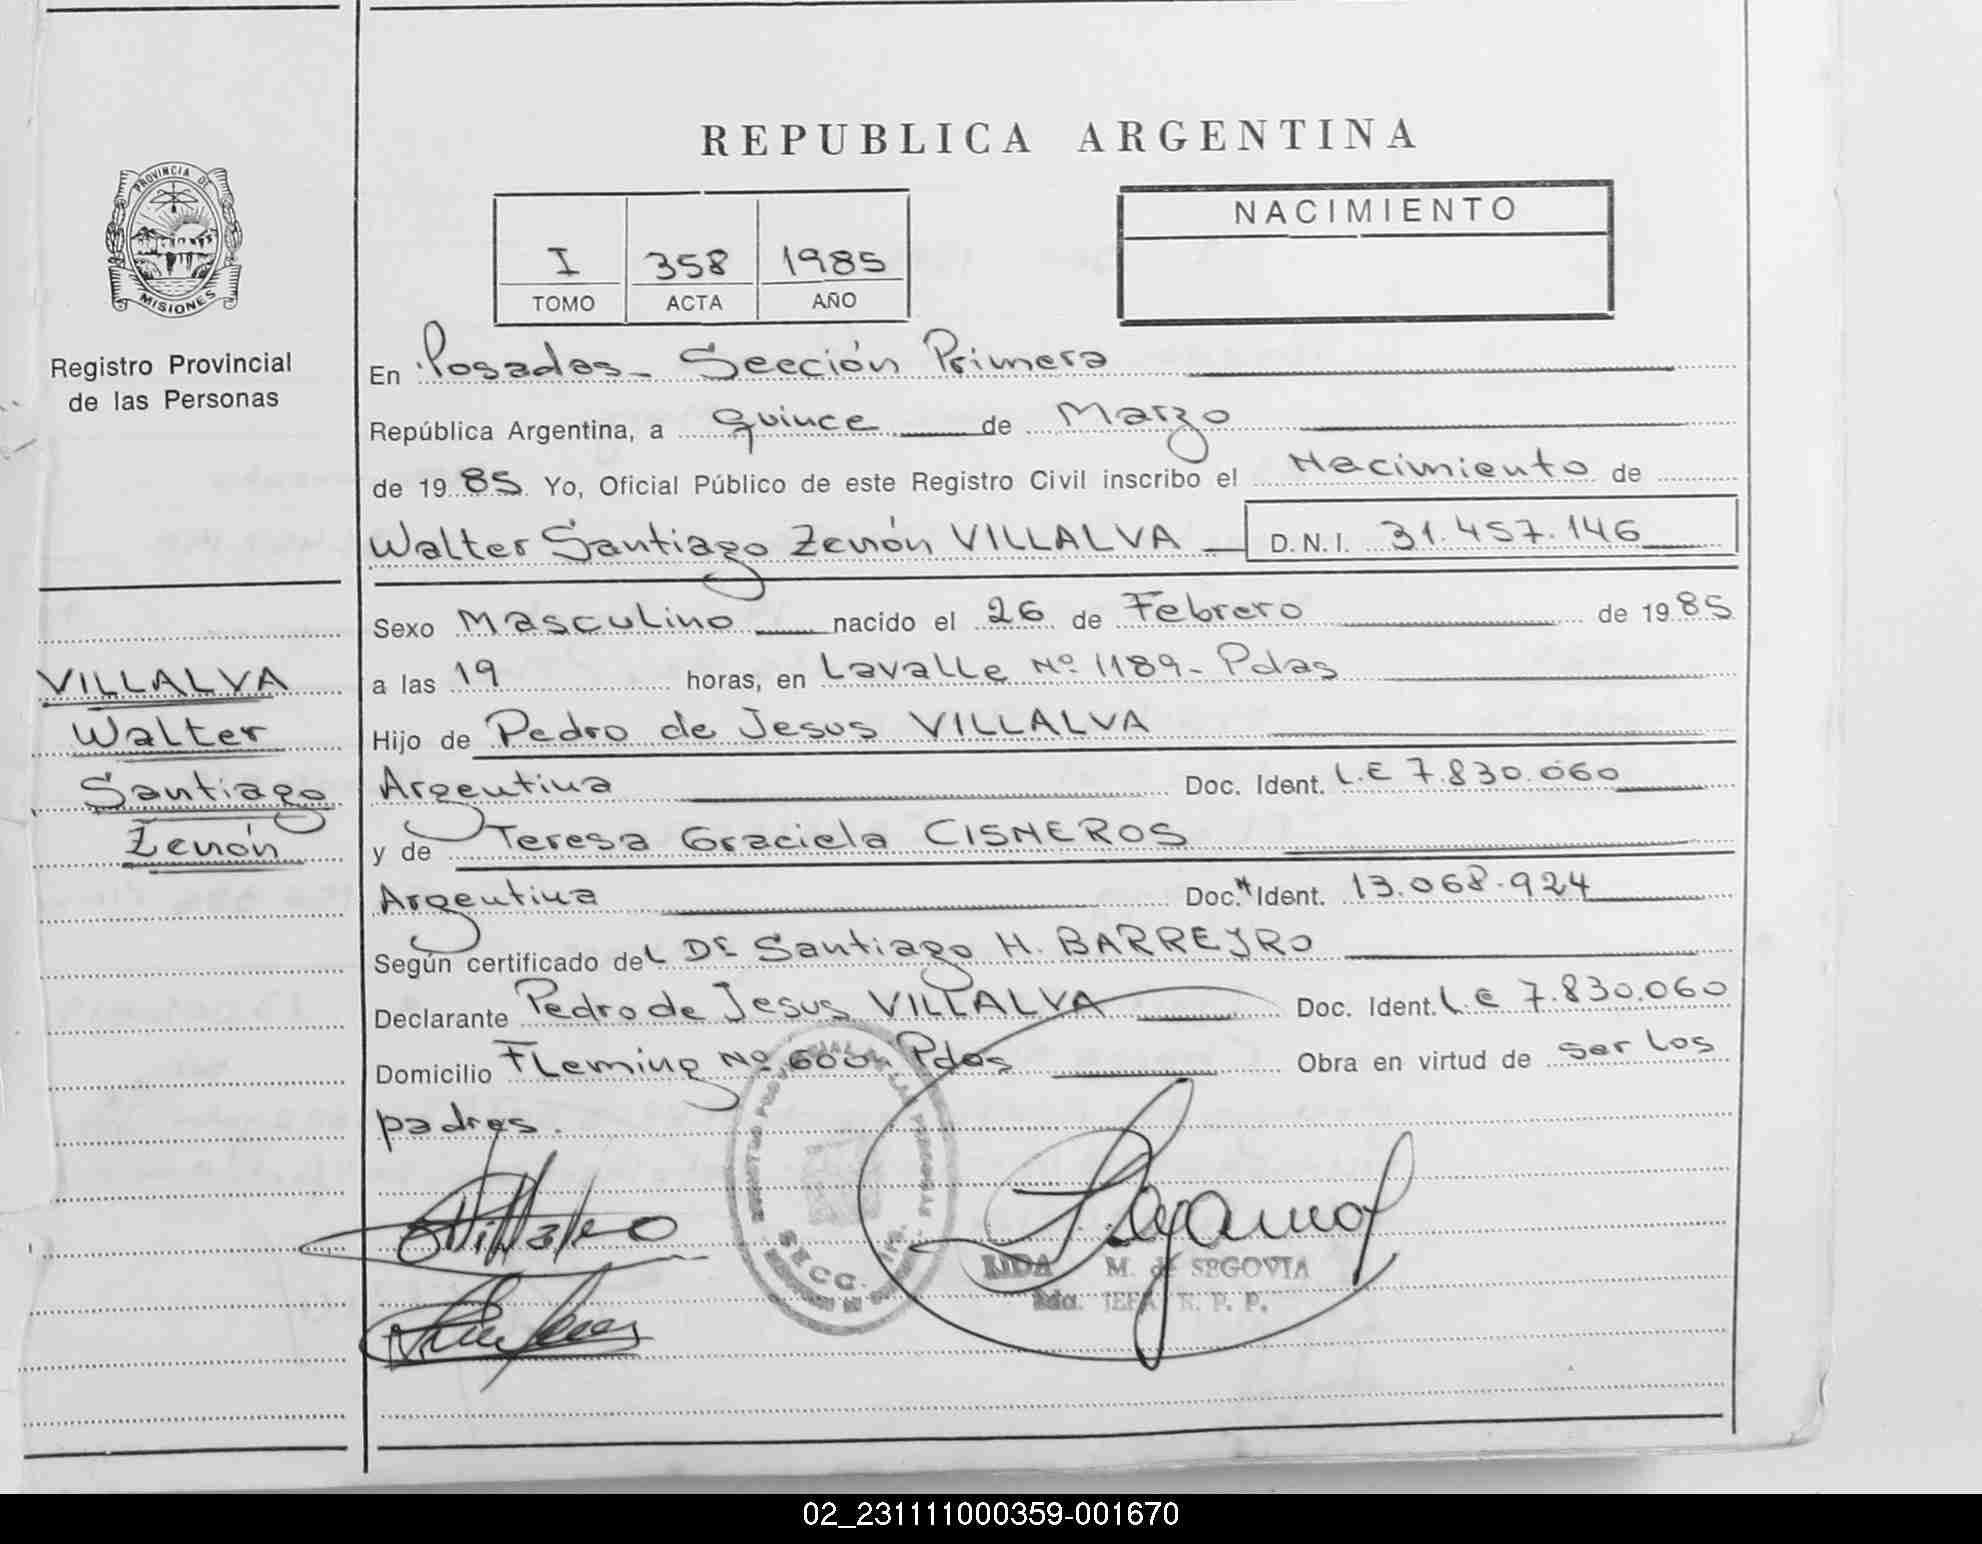 REPUBLICA ARGENTINA
PROVINCIA DE
MISIONES
Registro Provincial
de las Personas
NACIMIENTO
I 358 1985
TOMO ACTA AÑO
En Posadas - Sección Primera
República Argentina, a quince de Marzo
de 1985. Yo, Oficial Público de este Registro Civil inscribo el Nacimiento de
Walter Santiago Zenón VILLALVA D.N.I. 31.457.146
Sexo Masculino nacido el 26 de Febrero de 1985
VILLALVA
Walter
Santiago
Zenón
a las 19 horas, en Lavalle Nº 1189 - Pdas
Hijo de Pedro de Jesus VILLALVA
Argentina Doc. Ident. L.E 7.830.060
y de Teresa Graciela CISNEROS
Argentina Doc. Ident. 13.068.924
Según certificado del Dr Santiago H. BARREYRO
Declarante Pedro de Jesus VILLALVA Doc. Ident. L.E 7.830.060
Domicilio Fleming Nº 600. Pdas Obra en virtud de ser los
padres.
SECC. 1ra.
LIDA M. de SEGOVIA
2da. JEFA R. P. P.
02_231111000359-001670